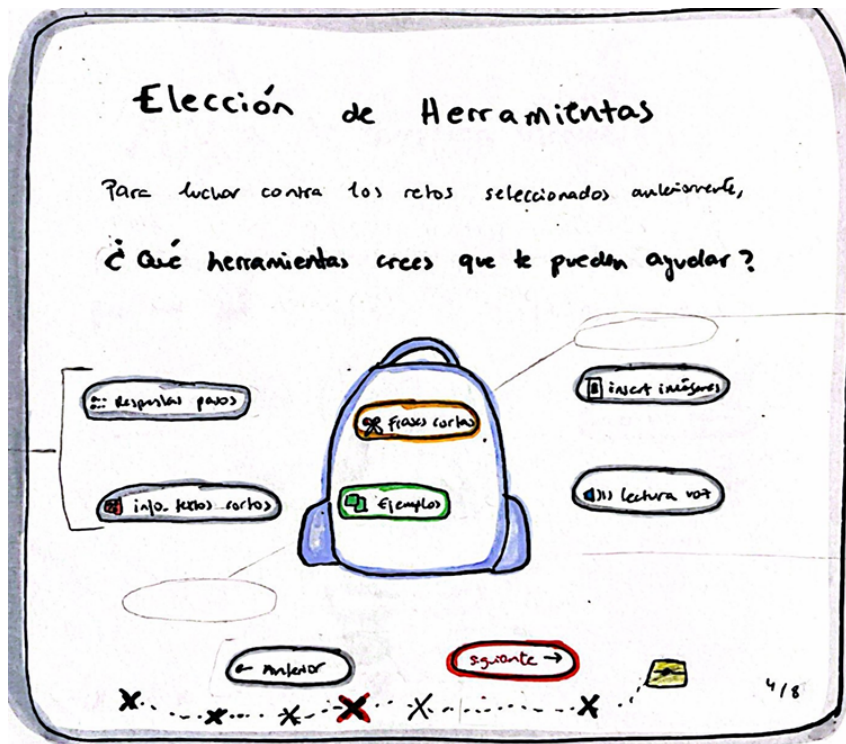 Elección de Herramientas
Para luchar contra los retos seleccionados anteriormente,
¿Qué herramientas crees que te pueden ayudar?
Respuestas pasos
Frases cortas
insert imágenes
info. textos cortos
Ejemplos
lectura voz
← Anterior
Siguiente →
4/8